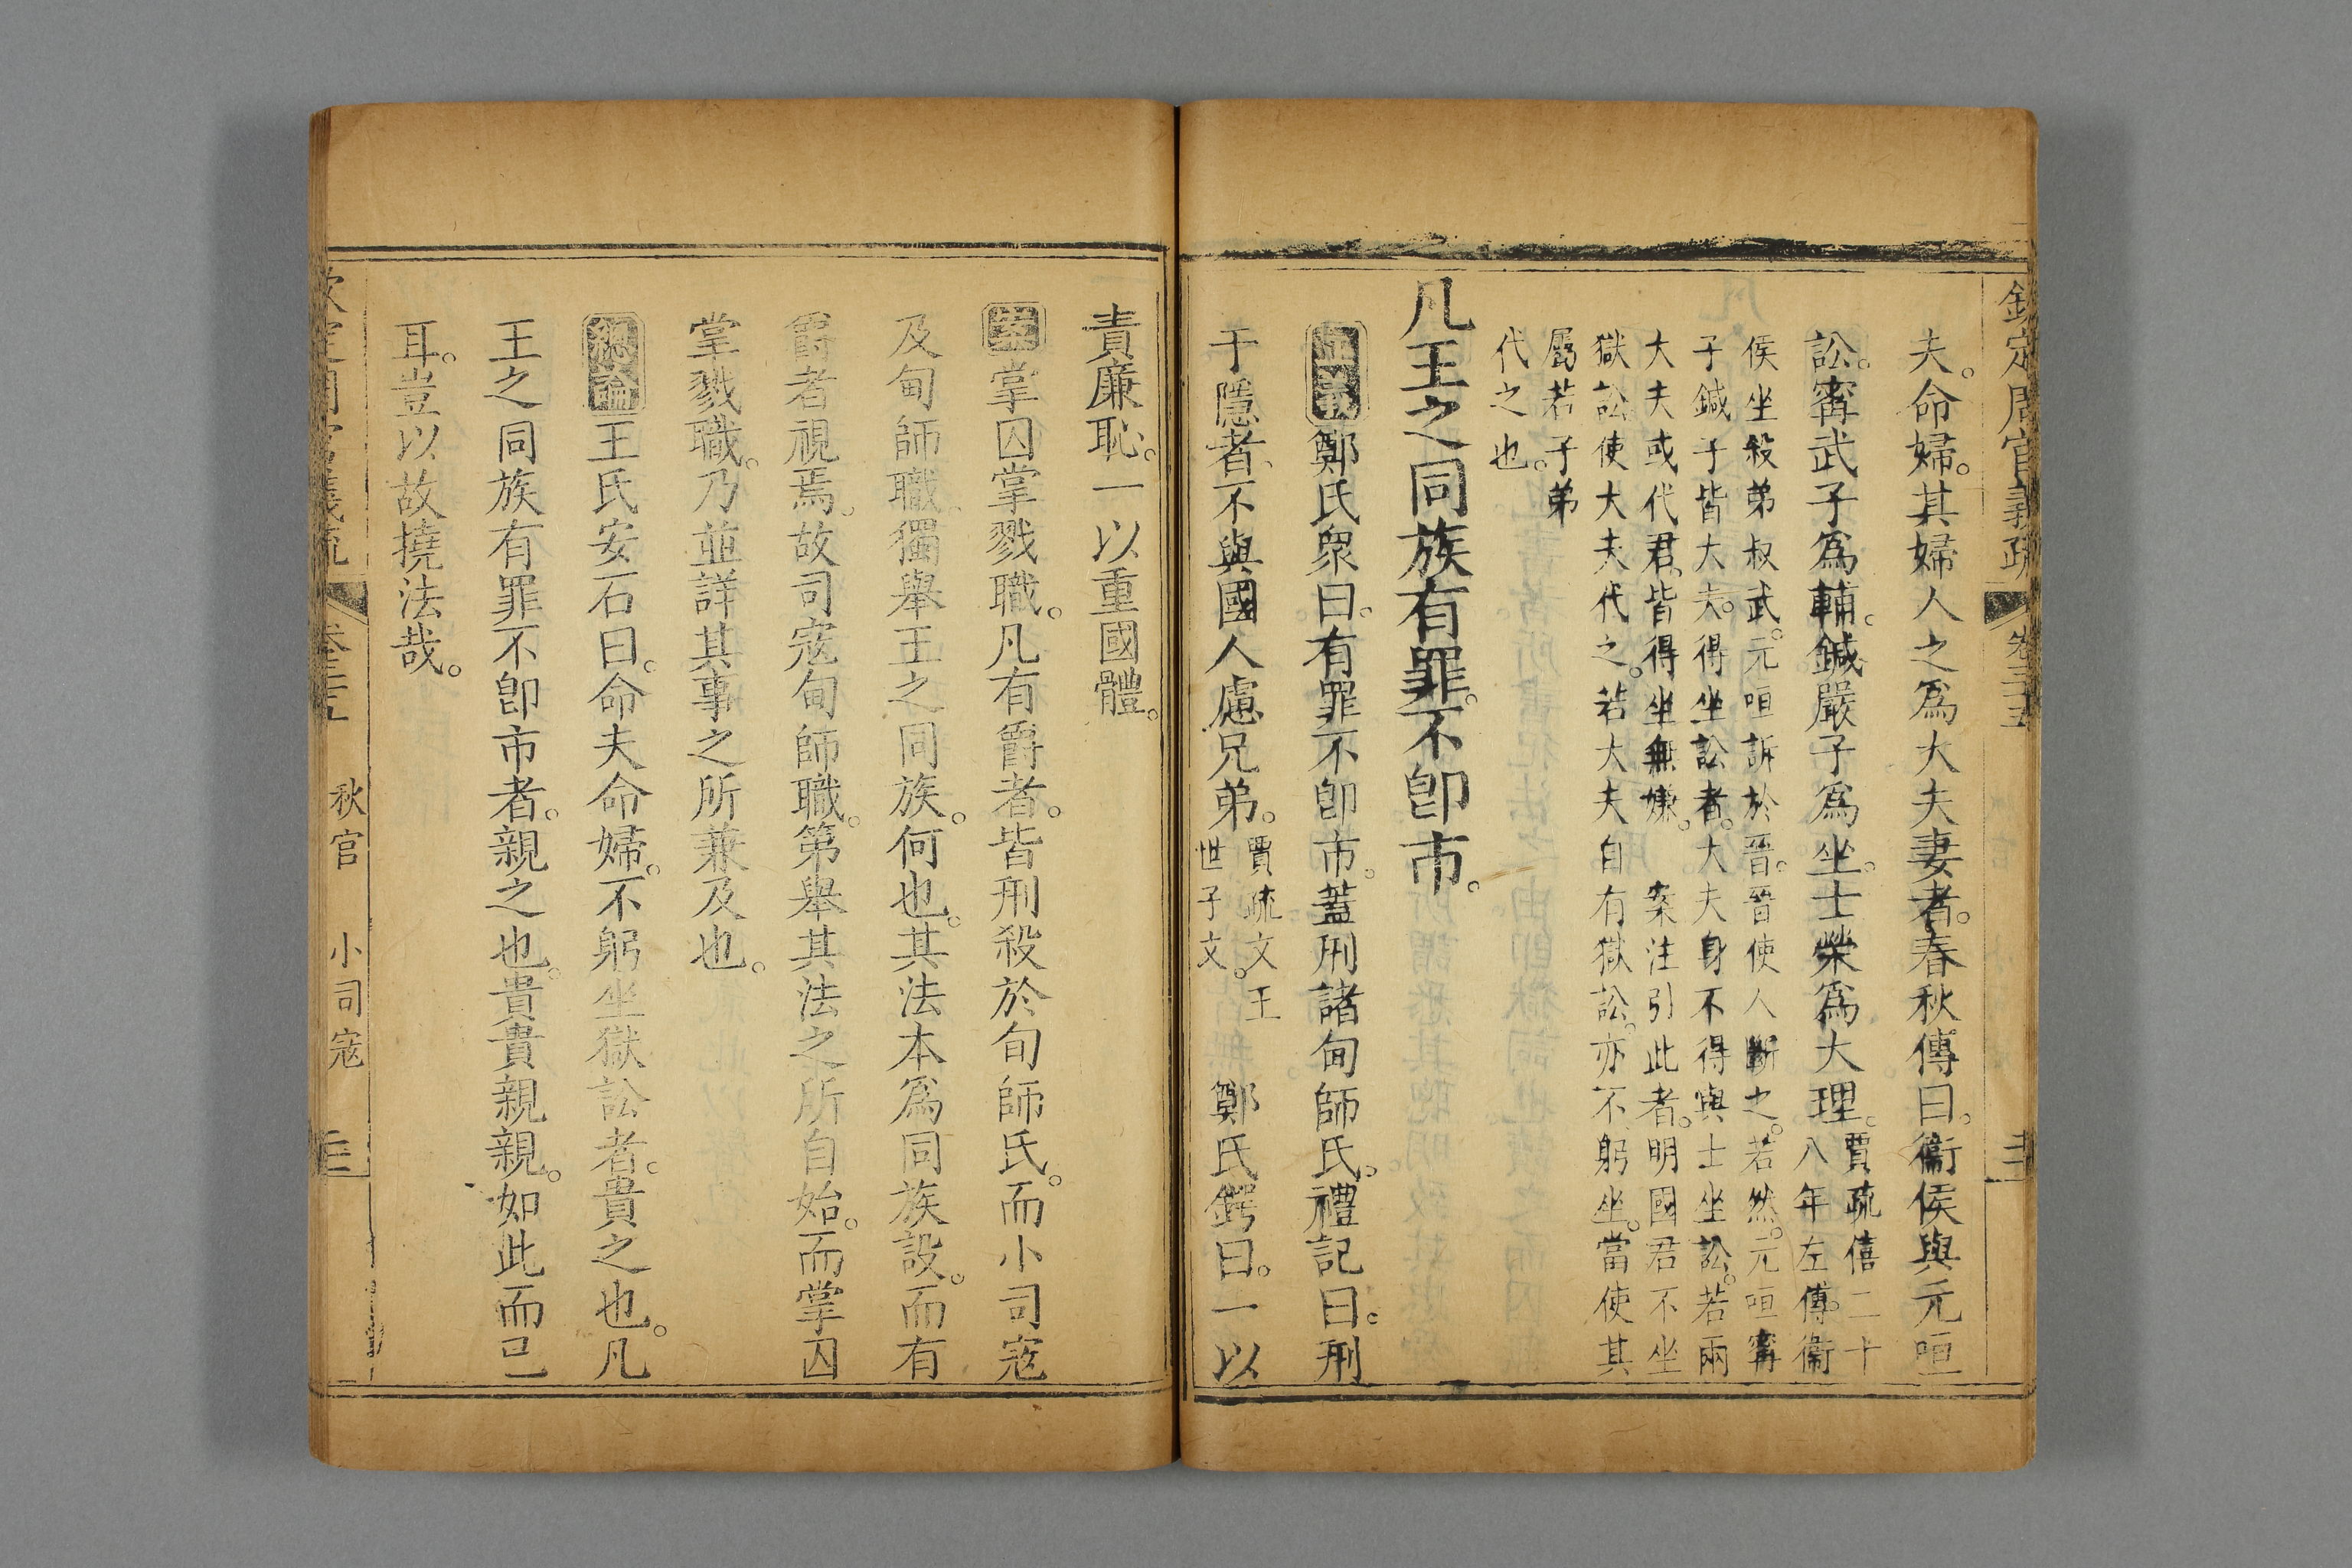 欽定周官義疏 卷三十五
夫。命婦。其婦人之爲大夫妻者。春秋傳曰。衞侯與元咺
訟。甯武子爲輔。鍼嚴子爲坐。士榮爲大理。賈疏僖二十
八年左傳。衞
侯坐殺弟叔武。元咺訴於晉。晉使人斷之。若然。元咺甯
子鍼子皆大夫。得坐訟者。大夫身不得與士坐訟。若兩
大夫或代君。皆得坐無嫌。 案注引此者。明國君不坐
獄訟使大夫代之。若大夫自有獄訟。亦不躬坐。當使其
屬若子弟
代之也。
凡王之同族有罪。不卽市。
鄭氏眾曰。有罪不卽市。蓋刑諸甸師氏。禮記曰。刑
于隱者、不與國人慮兄弟。賈疏文王
世子文。 鄭氏鍔曰。一以
責廉恥。一以重國體。
案掌囚掌戮職。凡有爵者。皆刑殺於甸師氏。而小司寇
及甸師職。獨舉王之同族。何也。其法本爲同族設。而有
爵者視焉。故司寇甸師職。第舉其法之所自始。而掌囚
掌戮職。乃並詳其事之所兼及也。
總論王氏安石曰。命夫命婦。不躬坐獄訟者。貴之也。凡
王之同族有罪不卽市者。親之也。貴貴親親。如此而已
耳。豈以故撓法哉。
秋官 小司寇